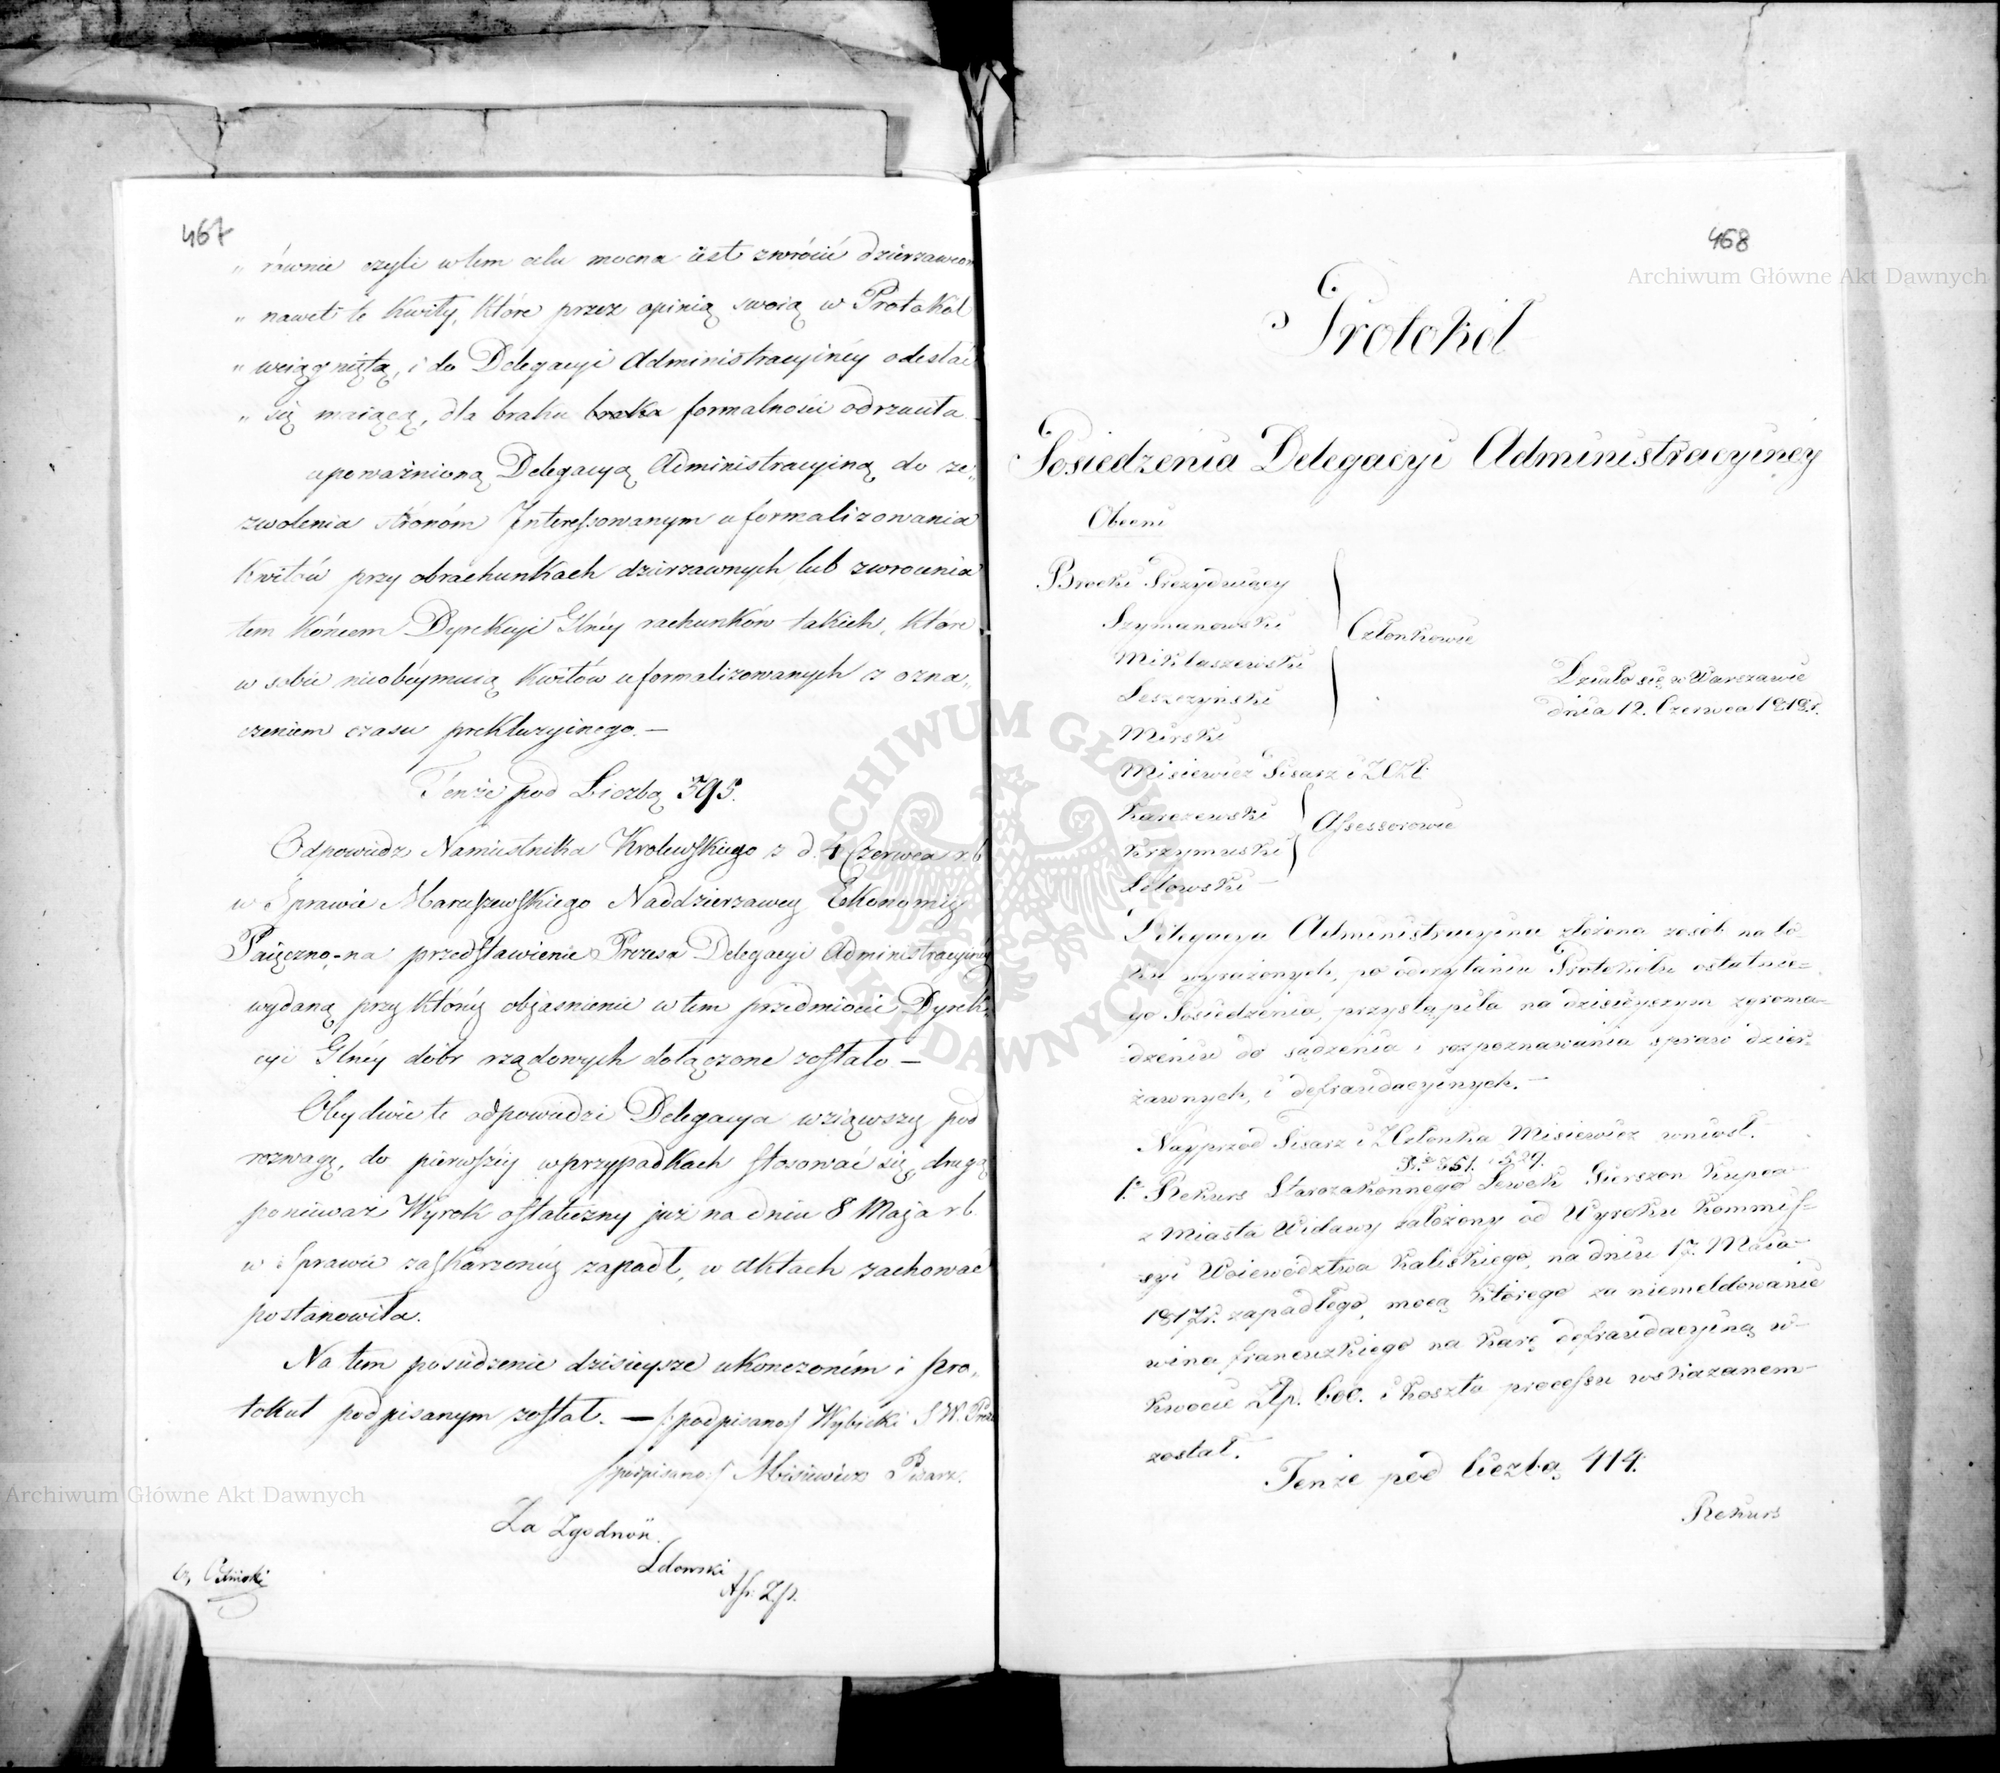 467
„ równie czyli w tem celu mocna iest zwrócić dzierzawcom
„ nawet te kwity, które przez opinią swoią w Protokół
„ wciągniętą, i do Delegacyi Administracyiney odesłać
„ się maiącą, dla braku braku formalności odrzuciła
upoważnioną Delegacyą Administracyiną do ze„
zwolenia strónóm Interessowanym uformalizowania
kwitów przy obrachunkach dzierzawnych lub zwrócenia
tem końcem Dyrekcyi Głnéy rachunków takich, które
w sobie nieobéymuią kwitów uformalizowanych z ozna„
czeniem czasu prekluzyinego. —
Tenże pod Liczbą 395.
Odpowiedz Namiestnika Krolewskiego z d. 4 Czerwca r. b.
w Sprawie Maruszewskiego Naddzierzawcy Ekonomiy
Paięczno - na przedstawienie Prezesa Delegacyi Administracyinéy
wydaną przy któréy obiasnienie w tem przedmiocie Dyrek„
cyi Głnéy dóbr rządowych dołączone zostało —
Obydwie te odpowiedzi Delegacya wziąwszy pod
rozwagę, do pierwszéy w przypadkach stosować się, drugą
ponieważ Wyrok ostateczny już na dniu 8 Maja r. b.
w Sprawie zaskarzonéy zapadł, w aktach zachować
postanowiła.
Na tem posiedzenie dzisieysze ukończoném i pro„
tokuł podpisanym został. — /: podpisano :/ Wybicki S. W. Prez.
/: podpisano :/ Misiewicz Pisarz.
Za Zgodność
Ldowski
Ass. Z. p.
468
Protokół
Posiedzenia Delegacyi Administracyinéy
Obecni
Brocki Prezyduiący
Szymanowski
Członkowie
Miklaszewski
Leszczyński
Działo się w Warszawie
dnia 12. Czerwca 1818 r.
Mirski
Misiewicz Pisarz i ZCzł.
Karczewski
Assessorowie
Krzymuski
Lelowski —
Delegacya Administracyina złożona z osób na bo-
ku wyrażonych, po odczytaniu Protokołu ostatnie-
go Posiedzenia, przystąpiła na dzisieyszym zgroma-
dzeniu do sądzenia i rozpoznawania spraw dzier-
żawnych, i defraudacyinych. —
Nayprzód Pisarz i ZCzłonka Misiewicz wniósł.
Nr. 351. i 529.
1.° Rekurs Starozakonnego Lewek Gierszon Kupca
z Miasta Widawy założony od Wyroku Kommis-
syi Woiewództwa Kaliskiego, na dniu 17. Maia
1817 r. zapadłego, mocą którego za niemeldowanie
wina francuzkiego na karę defraudacyiną w
kwocie Złp. 600. i koszta processu wskazanem
został.
Tenże pod liczbą 414.
Rekurs
Archiwum Główne Akt Dawnych
Archiwum Główne Akt Dawnych
ARCHIWUM GŁÓWNE AKT DAWNYCH